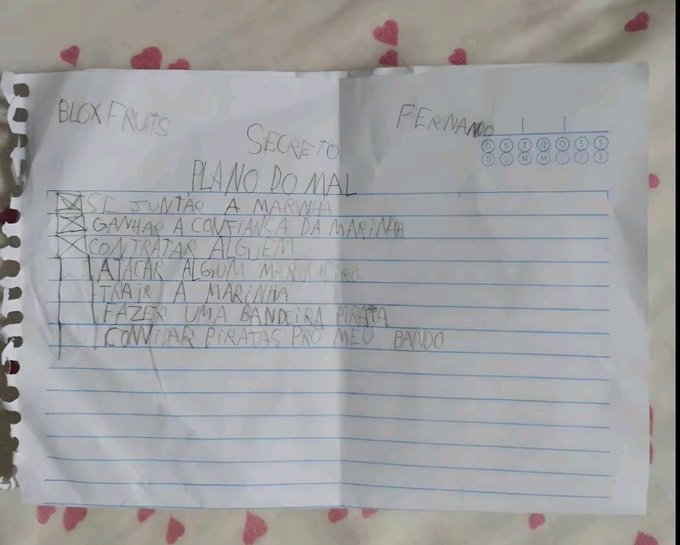 BLOX FRUITS
FERNANDO
SECRETO
PLANO DO MAL
SE JUNTAR A MARINHA
GANHAR A CONFIANSA DA MARINHA
CONTRATAR ALGUEM
ATACAR ALGUM MARINHEIRO
TRAIR A MARINHA
FAZER UMA BANDEIRA PIRATA
CONVIDAR PIRATAS PRO MEU BANDO